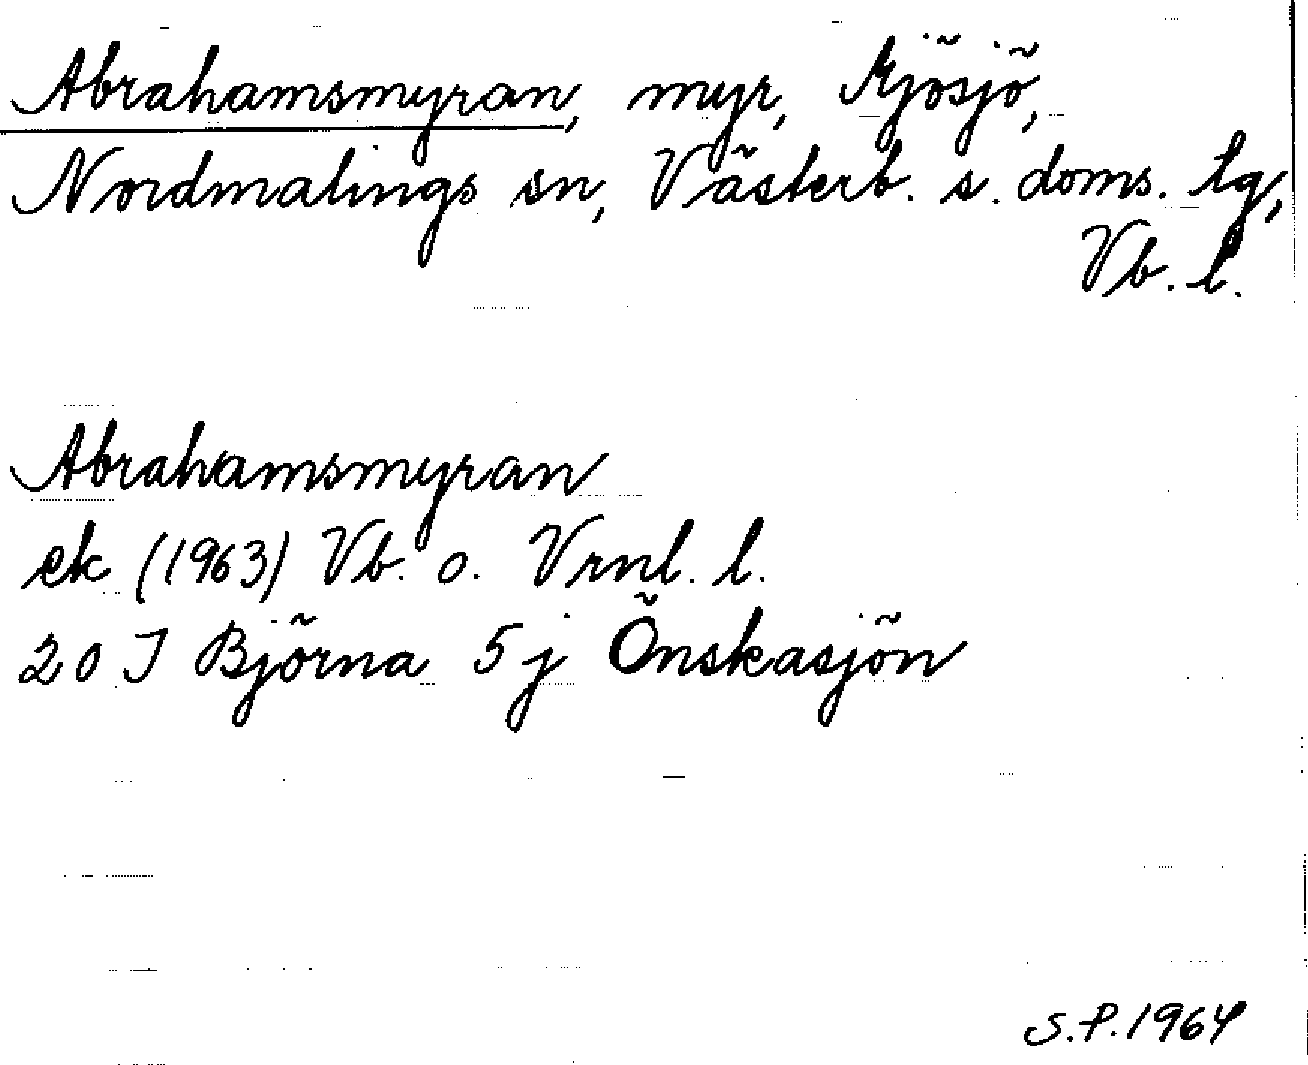 Abrahamsmyran, myr, Mjösjö,
Nordmalings sn, Västerb. s. doms. tg,
Vb. l.
Abrahamsmyran
ek (1963) Vb. o. Vrnl. l.
20 J Björna 5 j Önskasjön
S.P. 1964